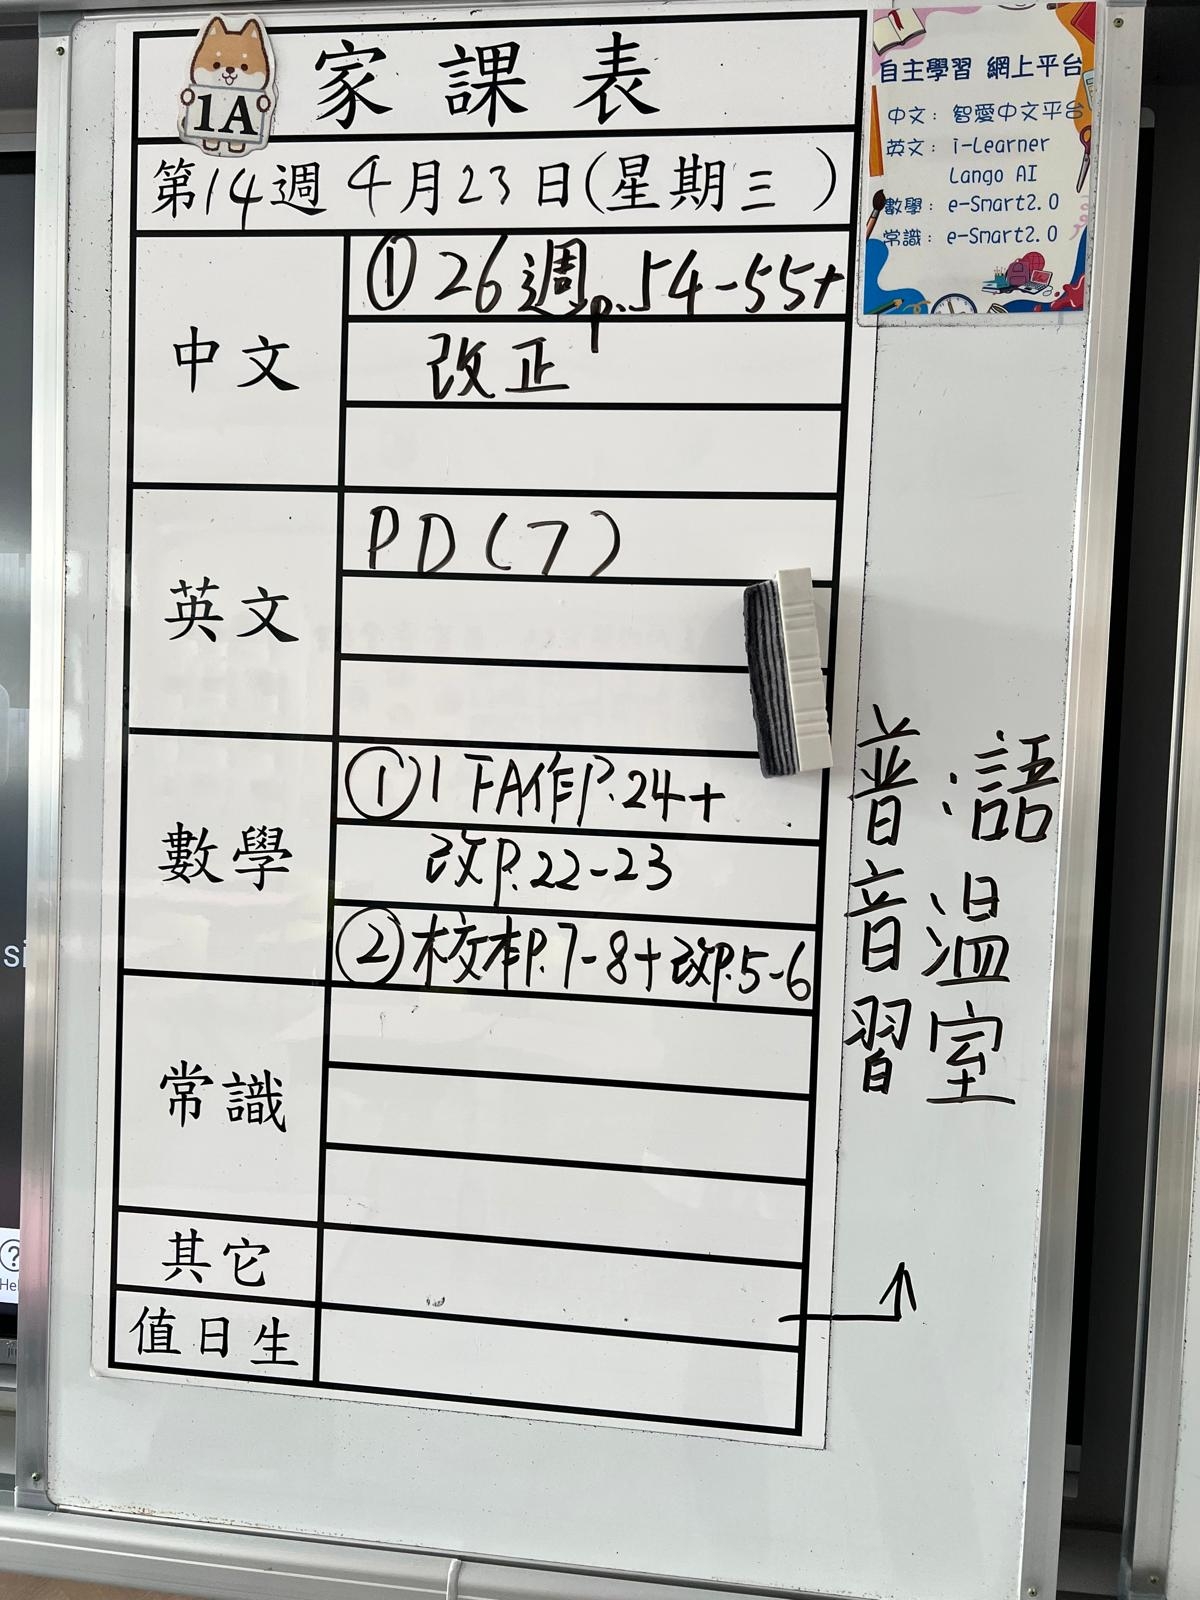 1A
家課表
第14週 4月23日(星期三 )
中文
① 26週p.54-55+
改正
英文
PD(7)
數學
① 1下A作P.24+
改P.22-23
② 校本P.7-8+改P.5-6
常識
其它
值日生
自主學習 網上平台
中文： 智愛中文平台
英文： i-Learner
Lango AI
數學： e-Smart2.0
常識： e-Smart2.0
普
音
習
語
溫
室